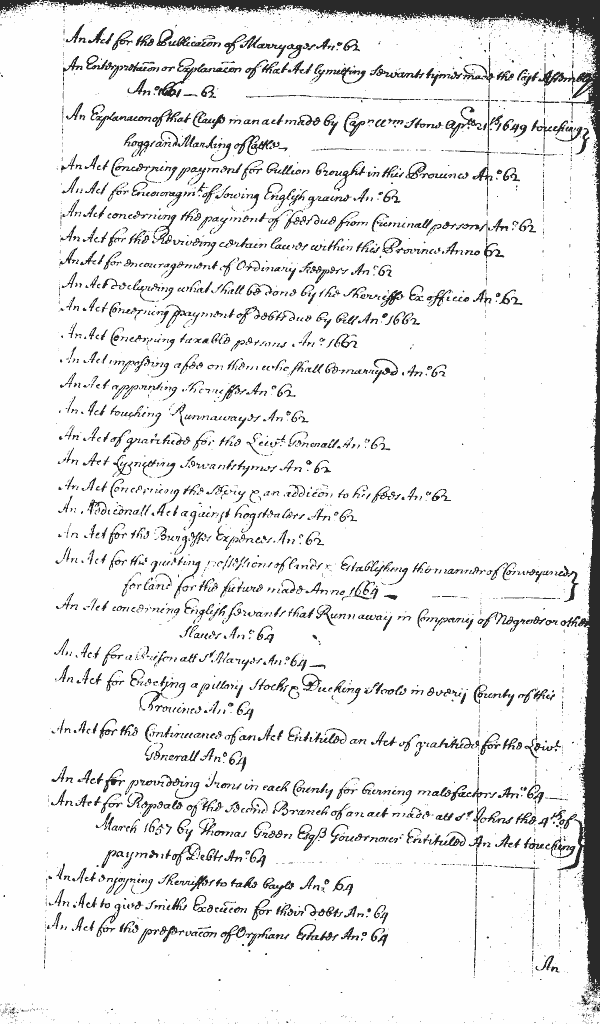 An Act for the Publicacōn of Marryages An.o 62
An Enterpretacōn or Explanacōn of that Act Lymitting Servants tymes made the last Assembly
An.o 1661 — 62
An Explanacōn of that Clause in an act made by Cap.n W.m Stone Ap.r 21.th 1649 touching
hoggs and Marking of Cattle
An Act Concerning payment for bullion brought in this Province An.o 62
An Act for Encouragm.t of Sowing English graine An.o 62
An Act concerning the payment of fees due from Criminall persons An.o 62
An Act for the Reviveing certain lawes within this Province Anno 62
An Act for encouragement of Ordinary Keepers An.o 62
An Act declareing what shall be done by the Sherriffe Ex officio An.o 62
An Act Concerning payment of debts due by bill An.o 1662
An Act Concerning taxable persons An.o 1662
An Act imposeing a fee on them who shall be marryed An.o 62
An Act appointing Sherriffes An.o 62
An Act touching Runnawayes An.o 62
An Act of gratitude for the Leiv.t Generall An.o 62
An Act Lymitting Servants tymes An.o 62
An Act Concerning the & an addicōn to his fees An.o 62
An Addiconall Act against hogstealers An.o 62
An Act for the Burgesses Expences An.o 62
An Act for the quieting possessions of lands & Establishing the manner of Conveyances
for land for the future made Anno 1664 —
An Act concerning English Servants that Runnaway in Company of Negroes or other
Slaves An.o 64
An Act for a Prison att S.t Maryes An.o 64 —
An Act for Erecting a pillory Stocks & Ducking Stoole in every County of this
Province An.o 64
An Act for the Continuance of an Act Entituled an Act of gratitude for the Leiv.t
Generall An.o 64
An Act for provideing Irons in each County for burning malefactors An.o 64
An Act for Repeale of the Second Branch of an act made att S.t Johns the 4.th of
March 1657 by Thomas Green Esq.r Governour Entituled An Act touching
payment of Debts An.o 64
An Act enjoyning Sherriffes to take bayle An.o 64
An Act to give Smiths Execucōn for their debts An.o 64
An Act for the preservacōn of Orphans Estates An.o 64
An